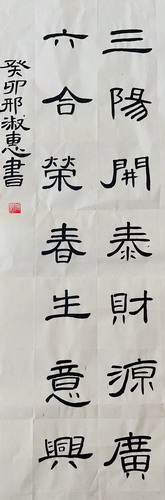 三陽開泰財源廣
六合榮春生意興
癸卯邢淑惠書